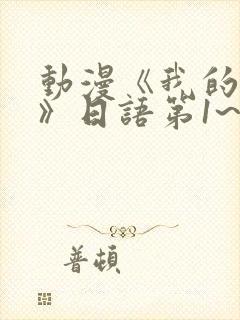 動漫《我的
》日語第1~
普頓